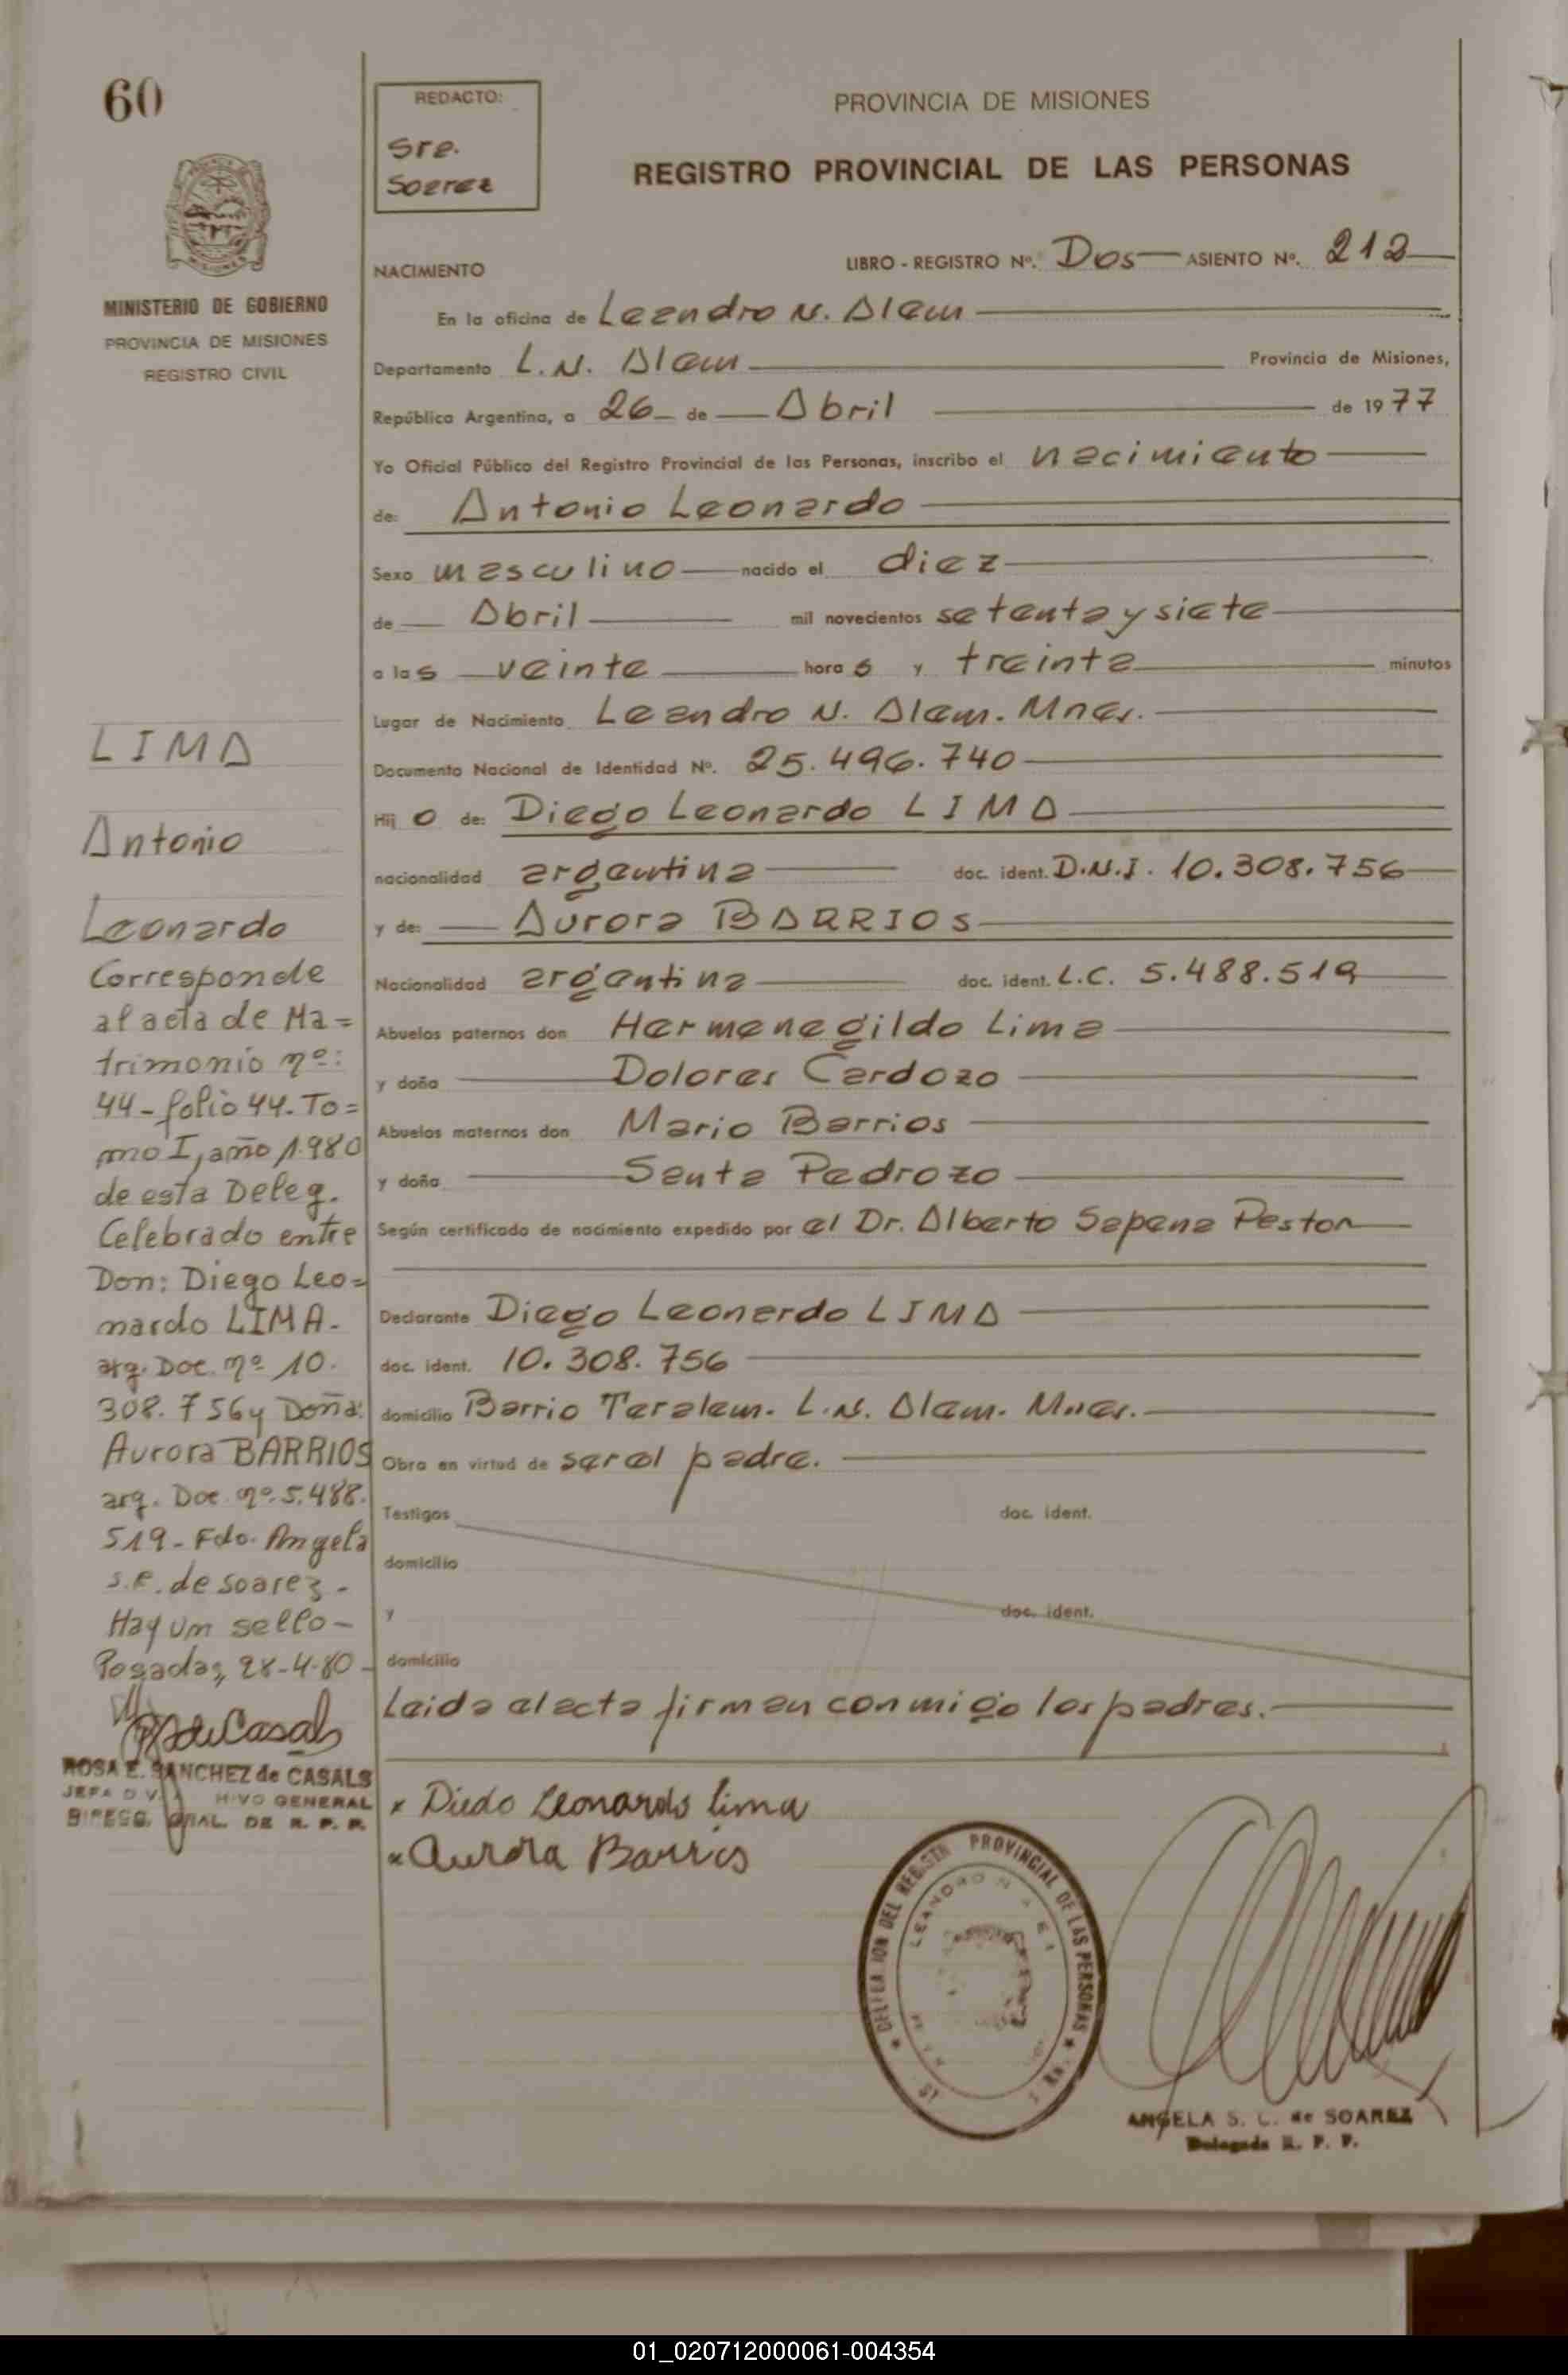 60
REDACTO:
Sra.
Soarez
PROVINCIA DE MISIONES
REGISTRO PROVINCIAL DE LAS PERSONAS
MINISTERIO DE GOBIERNO
PROVINCIA DE MISIONES
REGISTRO CIVIL
NACIMIENTO
LIBRO - REGISTRO Nº. Dos ASIENTO Nº. 212
En la oficina de Leandro N. Alem
Departamento L.N. Alem Provincia de Misiones,
República Argentina, a 26 de Abril de 1977
Yo Oficial Público del Registro Provincial de las Personas, inscribo el nacimiento
de: Antonio Leonardo
Sexo masculino nacido el diez
de Abril mil novecientos setenta y siete
a las veinte horas y treinta minutos
Lugar de Nacimiento Leandro N. Alem. Mnes.
Documento Nacional de Identidad Nº. 25.496.740
Hijo de: Diego Leonardo LIMA
nacionalidad argentina doc. ident. D.N.I. 10.308.756
y de: Aurora BARRIOS
Nacionalidad argentina doc. ident. L.C. 5.488.519
Abuelos paternos don Hermenegildo Lima
y doña Dolores Cardozo
Abuelos maternos don Mario Barrios
y doña Santa Pedrozo
Según certificado de nacimiento expedido por el Dr. Alberto Sapena Pastor
Declarante Diego Leonardo LIMA
doc. ident. 10.308.756
domicilio Barrio Taralem. L.N. Alem. Mnes.
Obra en virtud de ser el padre.
Testigos doc. ident.
domicilio
y doc. ident.
domicilio
Leida el acta firman conmigo los padres.
LIMA
Antonio
Leonardo
Corresponde
al acta de Ma=
trimonio nº:
44-folio 44-To=
mo I, año 1.980
de esta Deleg.
Celebrado entre
Don: Diego Leo=
nardo LIMA-
arg. Doc. nº 10.
308.756 y Doña:
Aurora BARRIOS
arg. Doc. nº. 5.488.
519- Fdo. Angela
S.E. de Soarez-
Hay un sello-
Posadas, 28-4-80-
ROSA E. SANCHEZ de CASALS
JEFA DIV. HIVO GENERAL
DIRECC. GRAL. DE R. P. P.
x Diedo Leonardo lima
x Aurora Barrios
DELEGACION DEL REGISTRO PROVINCIAL DE LAS PERSONAS
LEANDRO N.
ANGELA S. C. de SOAREZ
Delegada R. P. P.
01_020712000061-004354